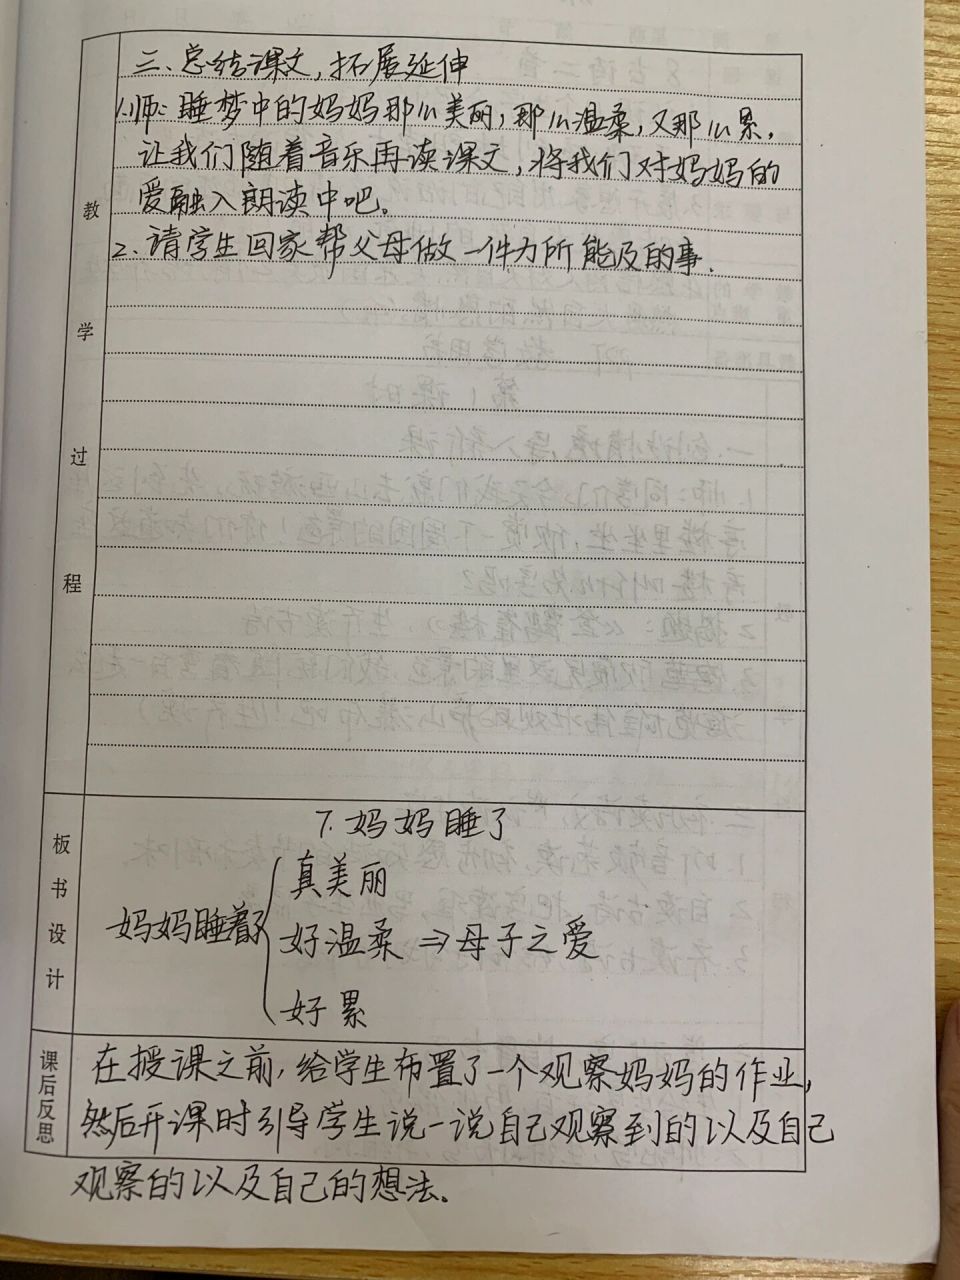 三、总结课文，拓展延伸
1.师：睡梦中的妈妈那么美丽，那么温柔，又那么累，
让我们随着音乐再读课文，将我们对妈妈的
爱融入朗读中吧。
2.请学生回家帮父母做一件力所能及的事.
教
学
过
程
7.妈妈睡了
真美丽
妈妈睡着了 好温柔 ⇒母子之爱
好累
板
书
设
计
在授课之前，给学生布置了一个观察妈妈的作业，
然后开课时引导学生说一说自己观察到的以及自己
观察的以及自己的想法。
课后反思